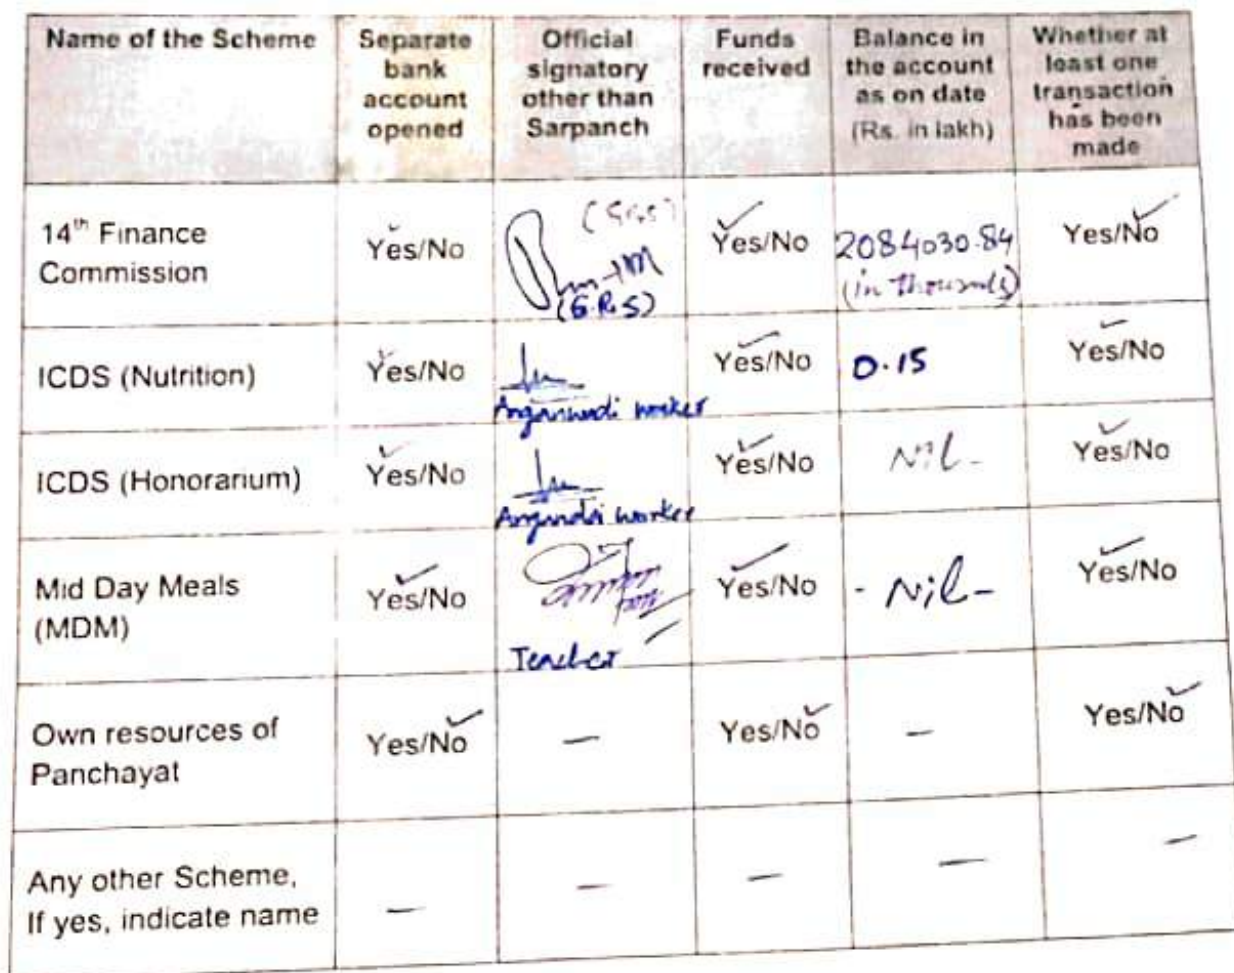 Name of the Scheme
Separate
bank
account
opened
Official
signatory
other than
Sarpanch
Funds
received
Balance in
the account
as on date
(Rs. in lakh)
Whether at
least one
transaction
has been
made
14th Finance
Commission
Yes/No
(G.R.S)
Yes/No
2084030.84
(in thousands)
Yes/No
ICDS (Nutrition)
Yes/No
Anganwadi worker
Yes/No
0.15
Yes/No
ICDS (Honorarium)
Yes/No
worker
Yes/No
Nil -
Yes/No
Mid Day Meals
(MDM)
Yes/No
Teacher
Yes/No
- Nil -
Yes/No
Own resources of
Panchayat
Yes/No
—
Yes/No
—
Yes/No
Any other Scheme,
If yes, indicate name
—
—
—
—
—